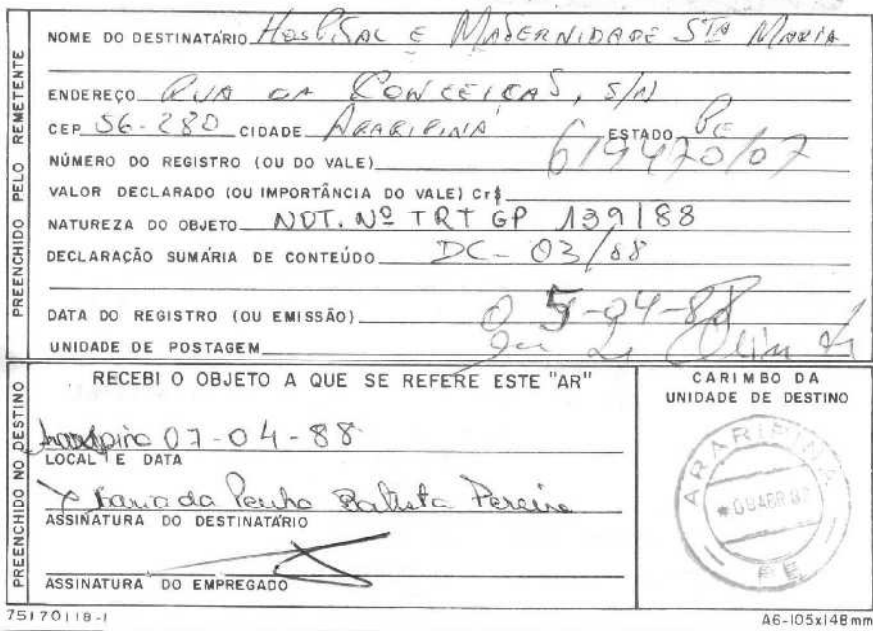 PREENCHIDO PELO REMETENTE
NOME DO DESTINATÁRIO Hospital e Maternidade Sta Maria
ENDEREÇO Rua da Conceicas, s/n
CEP 56-280 CIDADE Araripina ESTADO Pe
NÚMERO DO REGISTRO (OU DO VALE) 619470/07
VALOR DECLARADO (OU IMPORTÂNCIA DO VALE) Cr$
NATUREZA DO OBJETO NOT. Nº TRT GP 139/88
DECLARAÇÃO SUMÁRIA DE CONTEÚDO DC-03/88
DATA DO REGISTRO (OU EMISSÃO) 05-04-88
UNIDADE DE POSTAGEM
PREENCHIDO NO DESTINO
RECEBI O OBJETO A QUE SE REFERE ESTE "AR"
Araripina 07-04-88
LOCAL E DATA
Maria da Penha Batista Pereira
ASSINATURA DO DESTINATÁRIO
ASSINATURA DO EMPREGADO
CARIMBO DA
UNIDADE DE DESTINO
ARARIPINA
08 ABR 87
PE
75170118-1
A6-105x148mm